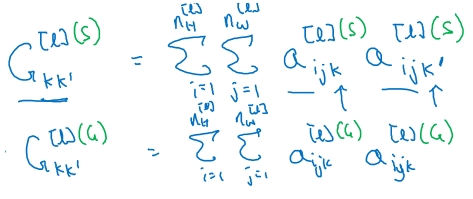 G_{kk'}^{[l](S)} = \sum_{i=1}^{n_H^{[l]}} \sum_{j=1}^{n_W^{[l]}} a_{ijk}^{[l](S)} a_{ijk'}^{[l](S)}
G_{kk'}^{[l](G)} = \sum_{i=1}^{n_H^{[l]}} \sum_{j=1}^{n_W^{[l]}} a_{ijk}^{[l](G)} a_{ijk}^{[l](G)}